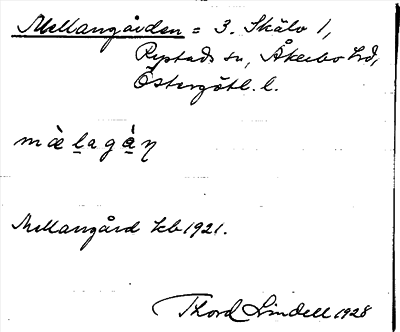 Mellangården = 3. Skälv 1,
Rystads sn, Åkerbo hd,
Östergötl. l.
mæ̀l̠agå̀ṇ
Mellangård kb 1921.
Thord Lindell 1928